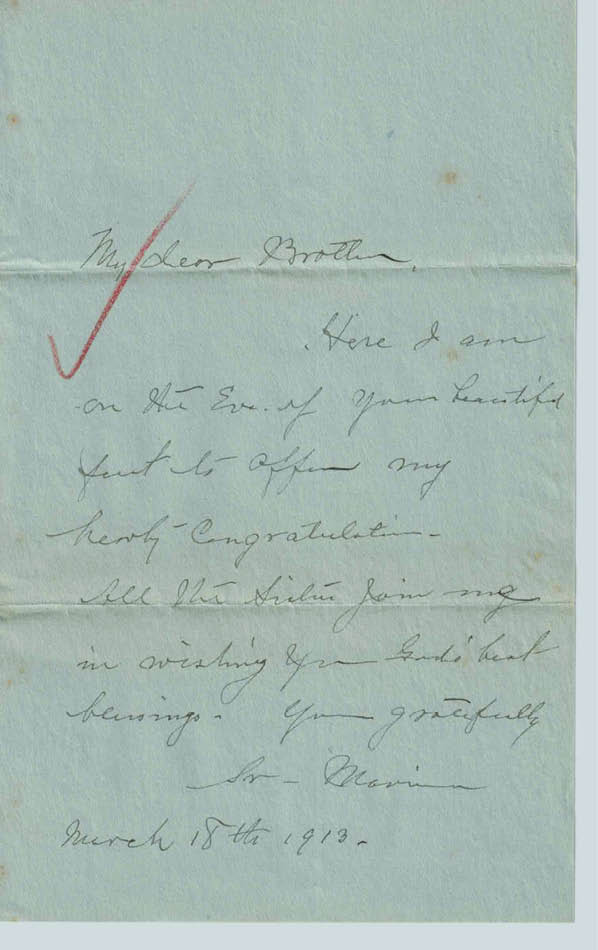 My dear Brother,
Here I am
on the Eve of your beautiful
feast to offer my
hearty Congratulation-
All the Sisters join me
in wishing you God's best
blessings. Your gratefully
Sr -
March 18th 1913.